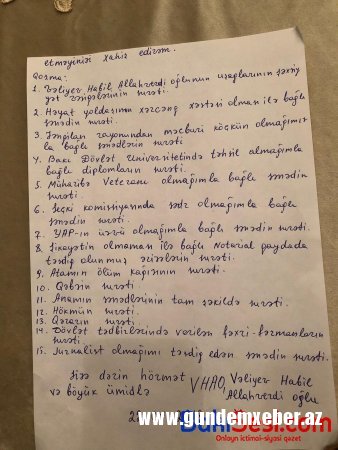 etməyinizi xahiş edirəm.
Qoşma:
1. Vəliyev Habil Allahverdi oğlunun uşaqlarının şəxsiyyət vəsiqələrinin surəti.
2. Həyat yoldaşımın xərçəng xəstəsi olması ilə bağlı
sənədin surəti.
3. Zəngilan rayonundan məcburi köçkün olmağımız
la bağlı sənədlərin surəti
4. Bakı Dövlət Universitetində təhsil almağımla
bağlı diplomların surəti.
5. Müharibə Veteranı olmağımla bağlı sənədin
surəti.
6. Seçki komissiyasında sədr olmağımla bağlı
sənədin surəti.
7. YAP-ın üzvü olmağımla bağlı sənədin surəti.
8. Şikayətin olmaması ilə bağlı Notarial qaydada
təsdiq olunmuş ərizələrin surəti.
9. Atamın ölüm kağızının surəti.
10. Qəbzin surəti
11. Anamın sənədlərinin tam şəkildə surəti.
12. Hökmün surəti.
13. Qərarın surəti.
14. Dövlət tədbirlərində verilən fəxri-fərmanların
surəti.
15. Jurnalist olmağımı təsdiq edən sənədin surəti.
Sizə dərin hörmət
və böyük ümidlə
VHAO, Vəliyev Habil
Allahverdi oğlu
www.gundemxeber.az
BakiSesi.com
Onlayn ictimai-siyasi qəzet